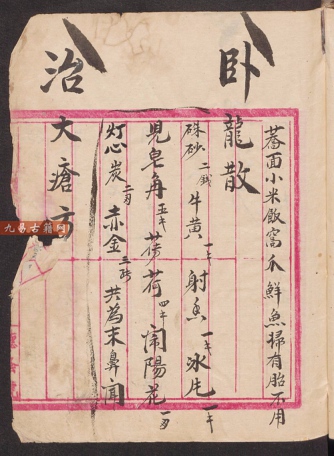 蕎面小米飯窩爪鮮魚掃有胎不用
卧龍散
硃砂二錢牛黄一キ射香一キ冰片一キ
見皂角五キ荷四キ閙陽花一
灯心炭二赤金三共為末鼻聞
治大瘡方
九易古籍网